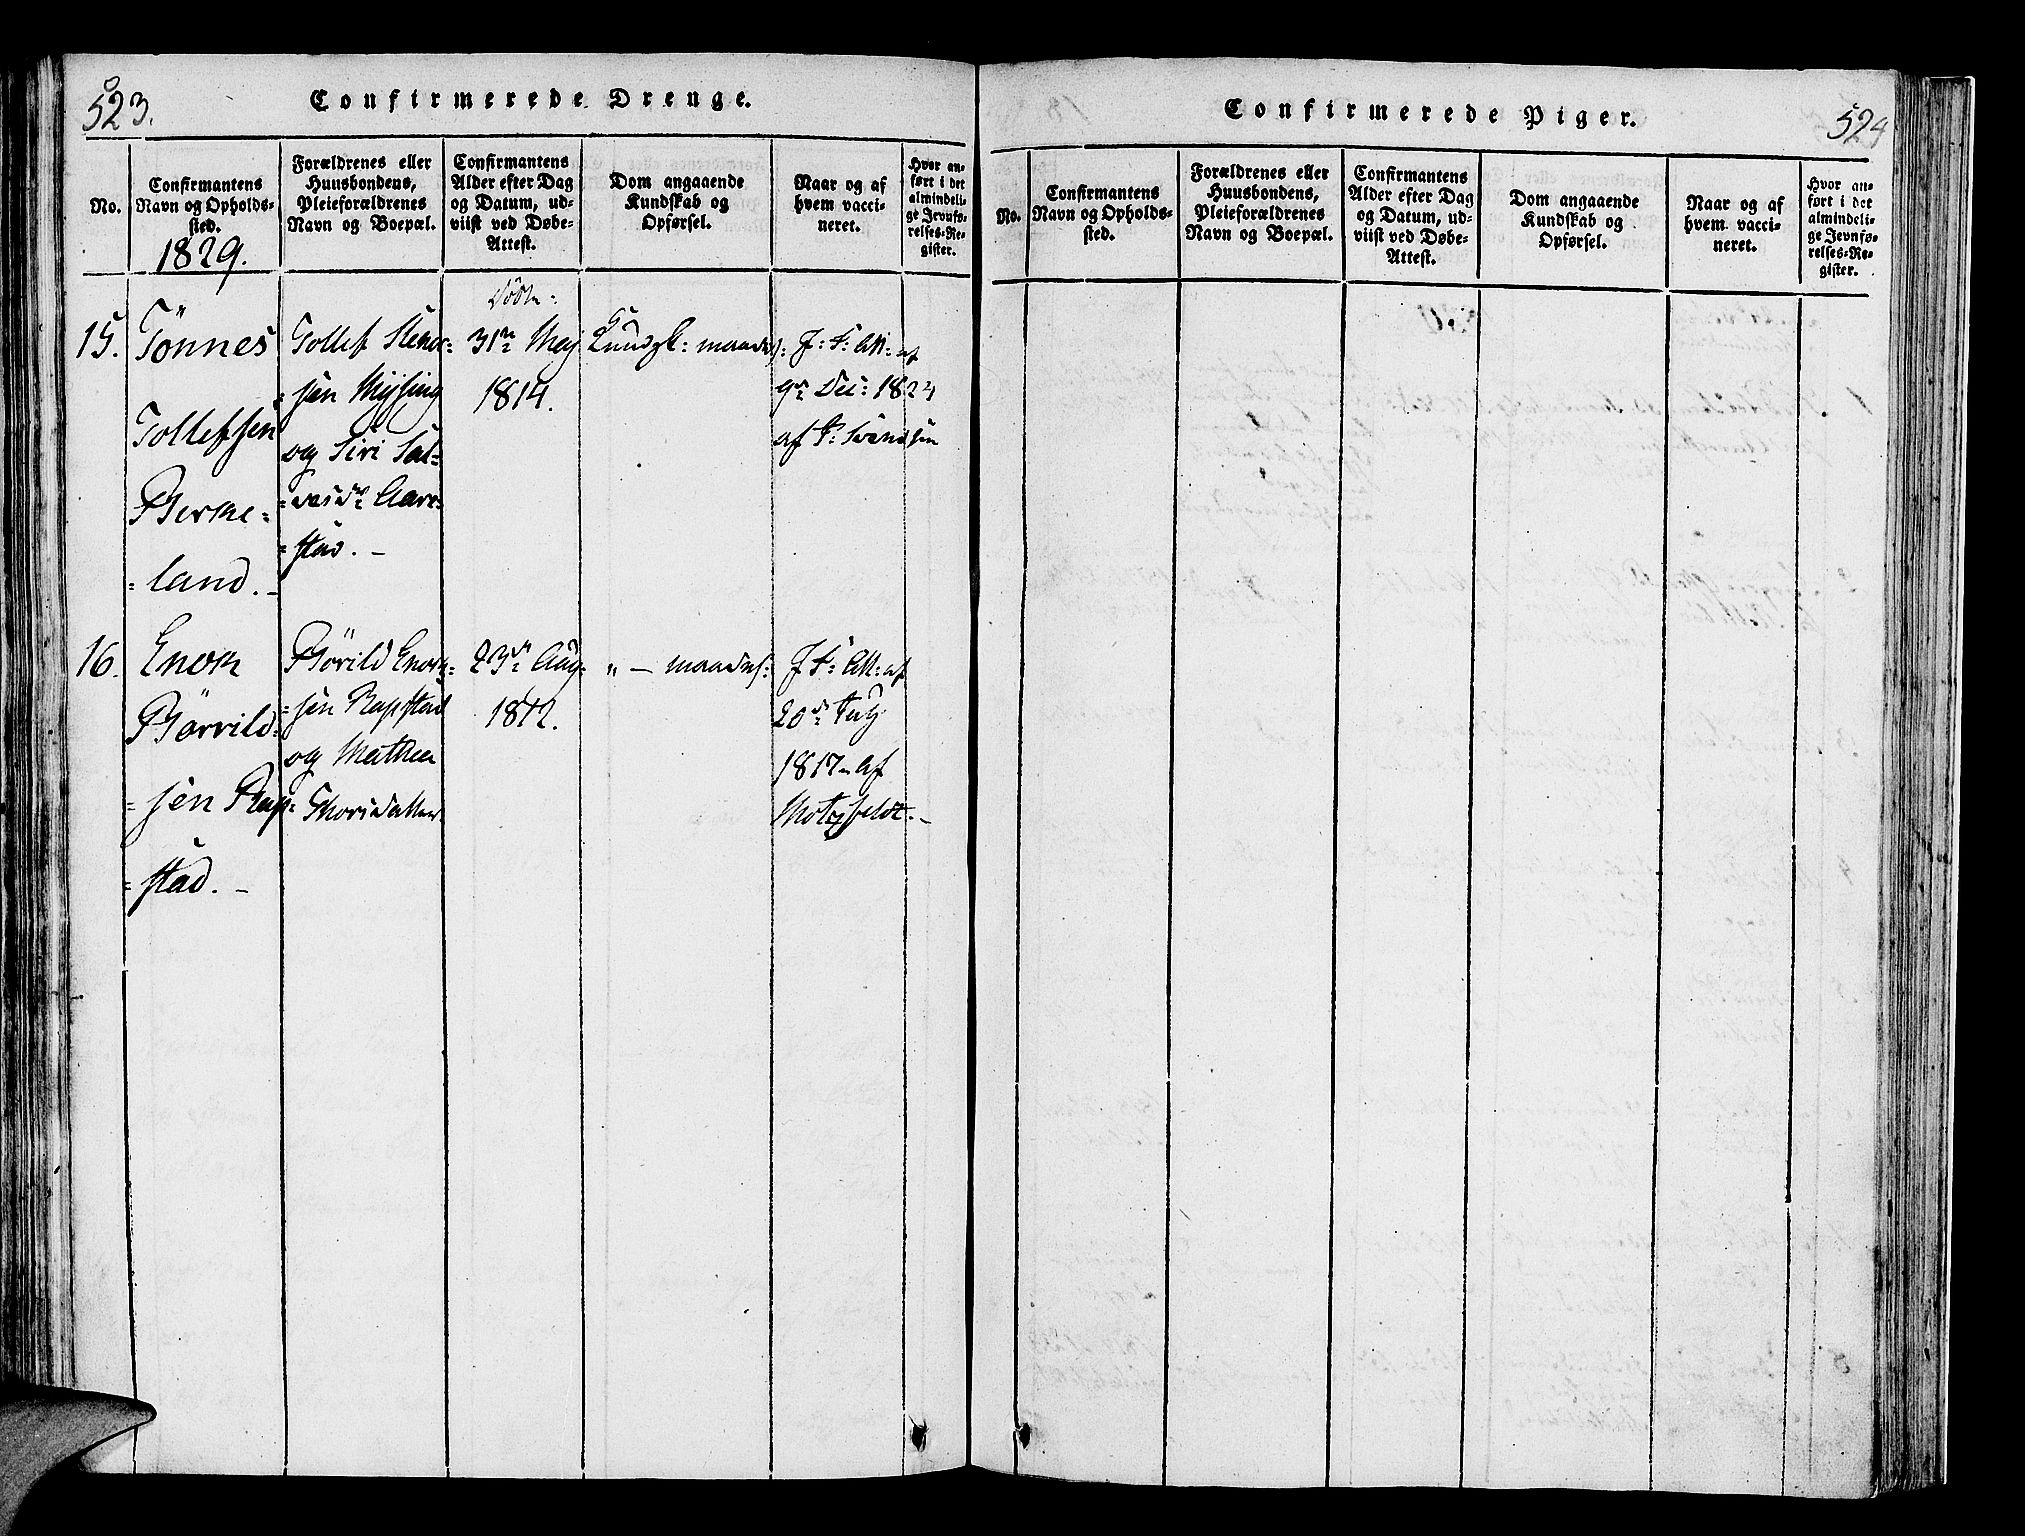 523.
Confirmerede Drenge.
No.
Confirmantens
Navn og Opholds-
sted.
Forældrenes eller
Huusbondens,
Pleieforældrenes
Navn og Boepæl.
Confirmantens
Alder efter Dag
og Datum, ud-
viist ved Døbe-
Attest.
Dom angaaende
Kundskab og
Opførsel.
Naar og af
hvem vacci-
neret.
Hvor an-
ført i det
almindeli-
ge Jevnfø-
relses-Re-
gister.
1829.
15.
Tönnes
Tollefsen
Birke=
=land.-
Tollef
=sen Myssing
og Siri Sal=
Aare=
=stad.-
Döbt:
31te Maj
1814.
Kundsk: maadel:
af
9de Dec: 1824
af Svendsen
16.
Enok
Börild=
=sen Rap=
=stad.-
Börild Enok=
=sen Rapstad
og Mathea
Thorsdatter
23de Aug:
1812.
"- maadel:
af
20de July
1817 af
Motzfeldt.-
Confirmerede Piger.
524
No.
Confirmantens
Navn og Opholds-
sted.
Forældrenes eller
Huusbondens,
Pleieforældrenes
Navn og Boepæl.
Confirmantens
Alder efter Dag
og Datum, ud-
viist ved Døbe-
Attest.
Dom angaaende
Kundskab og
Opførsel.
Naar og af
hvem vacci-
neret.
Hvor an-
ført i det
almindeli-
ge Jevnfø-
relses-Re-
gister.